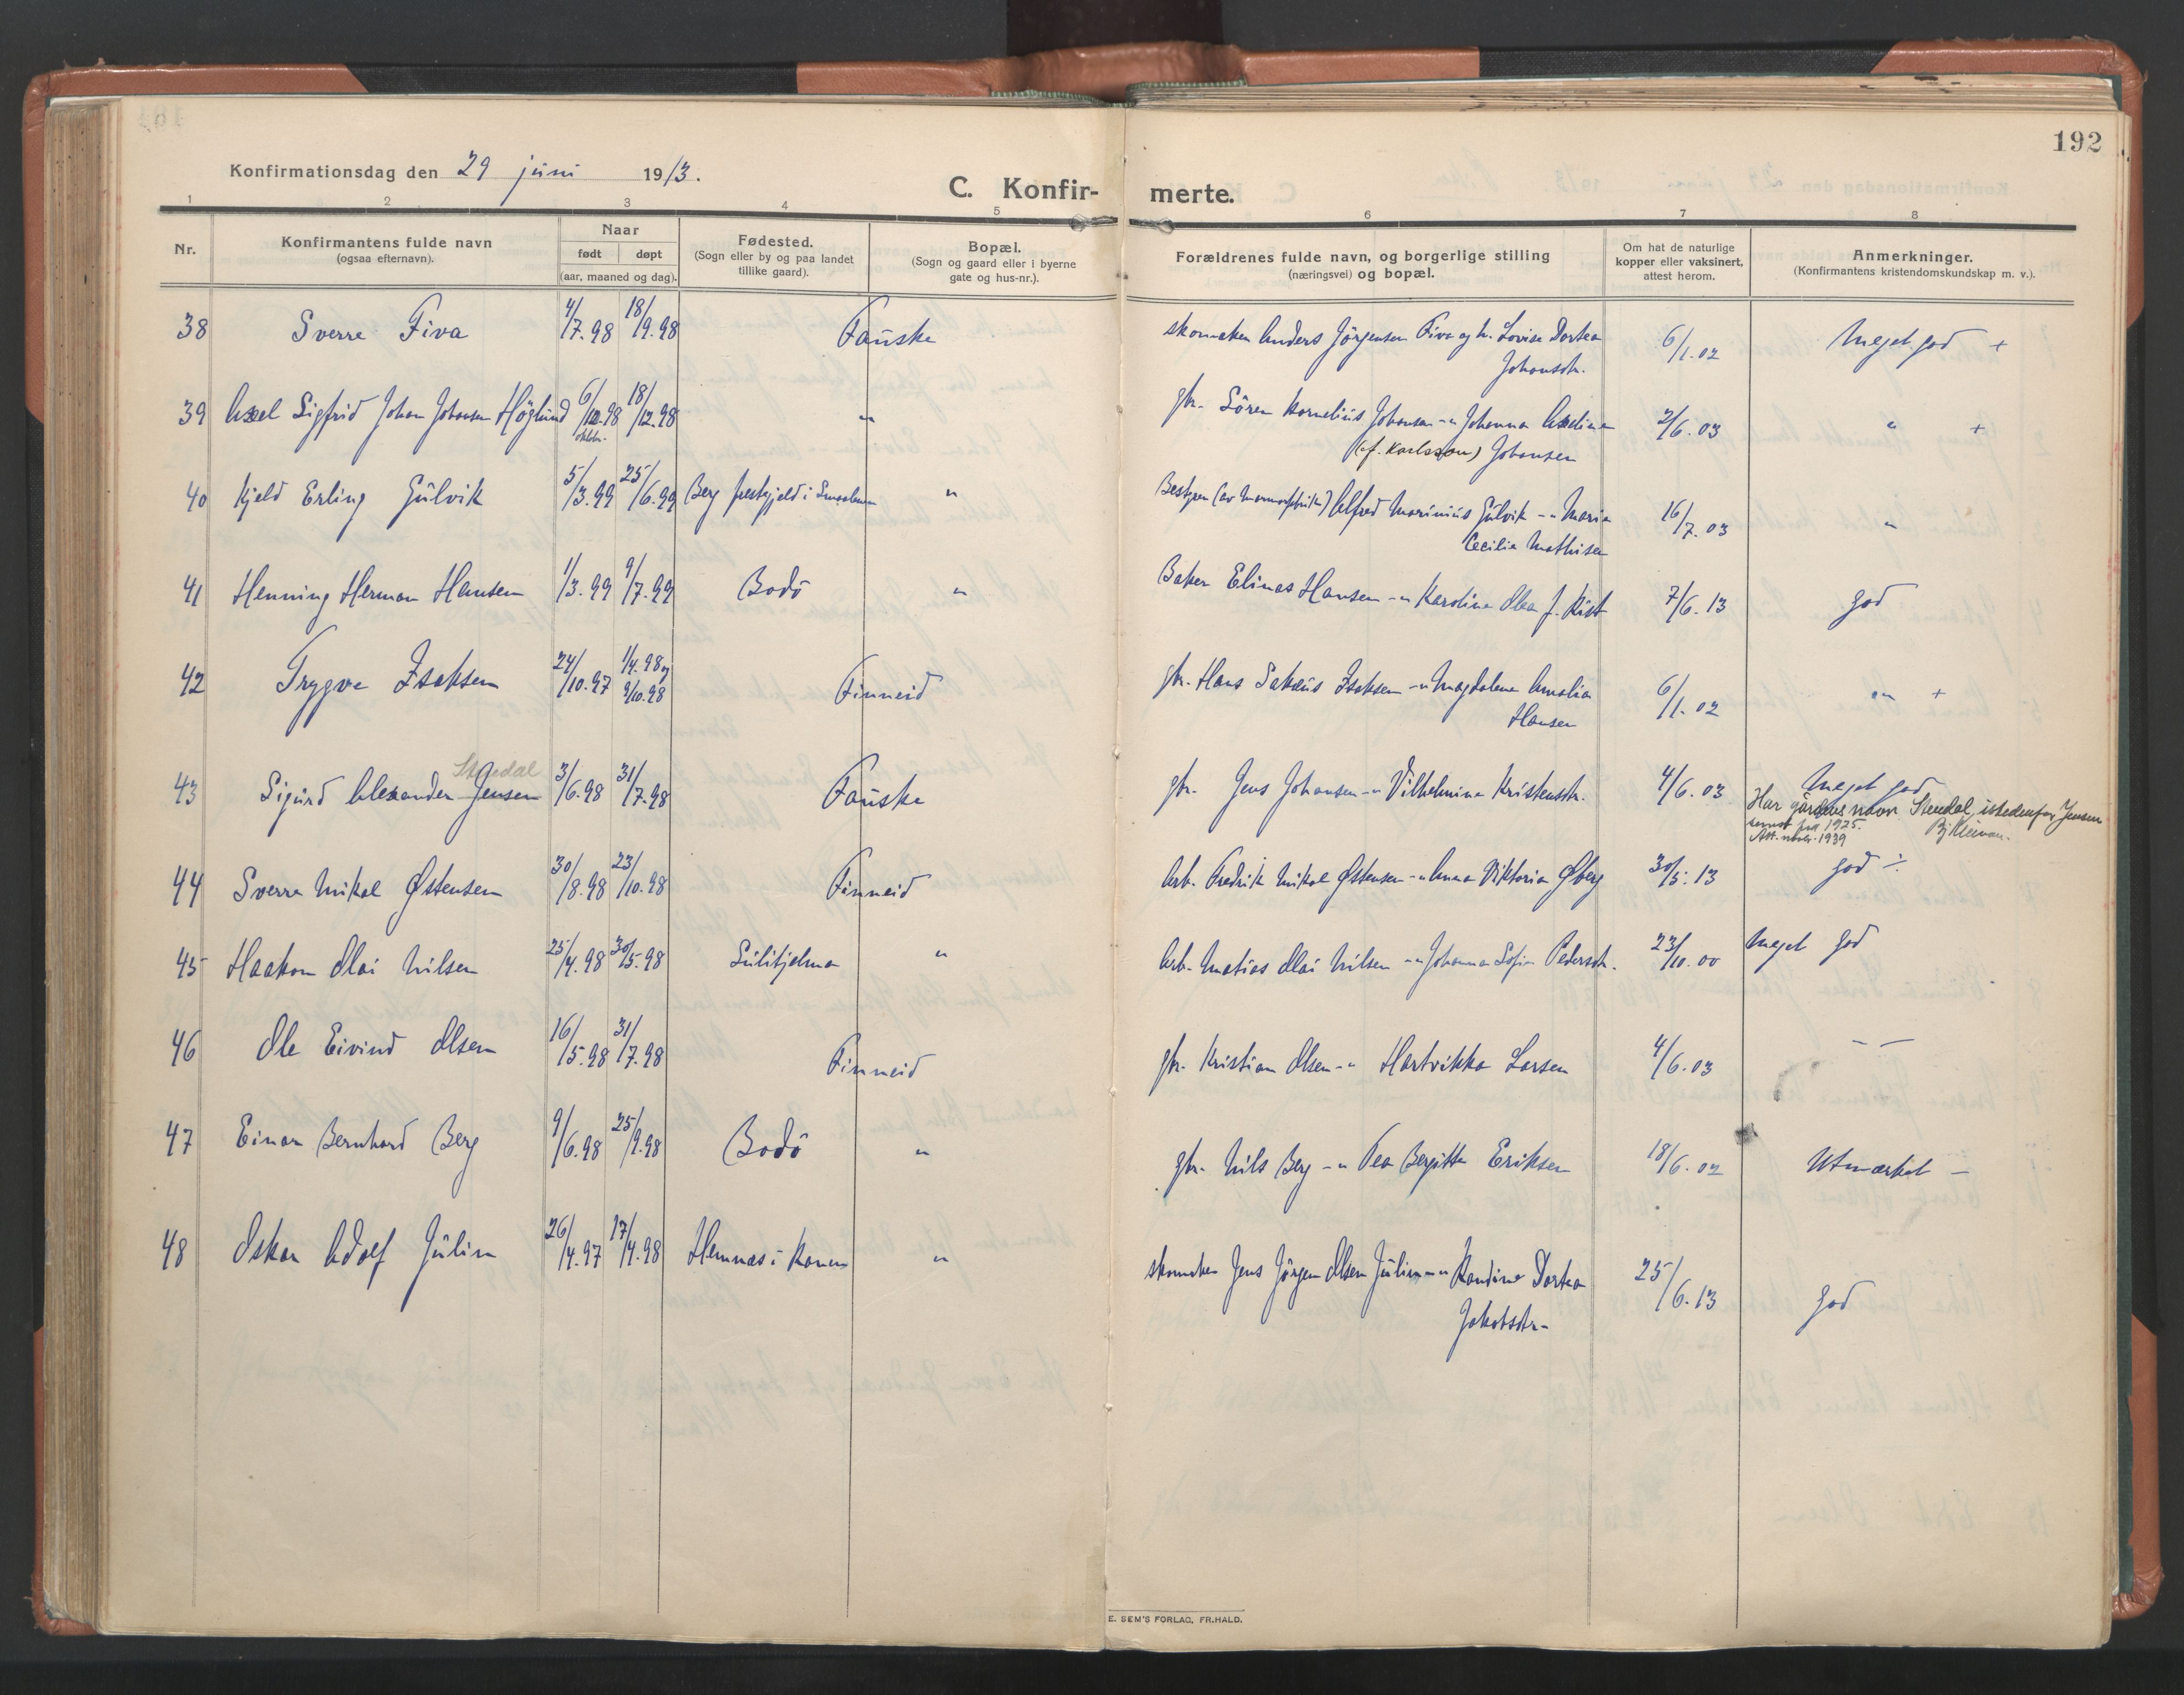 192
Konfirmationsdag den 29 juni 1913.
C. Konfir- merte.
1 2 3 4 5 6 7 8
Nr.
Konfirmantens fulde navn
(ogsaa efternavn).
Naar
født døpt
(aar, maaned og dag).
Fødested.
(Sogn eller by og paa landet
tillike gaard).
Bopæl.
(Sogn og gaard eller i byerne
gate og hus-nr.).
Forældrenes fulde navn, og borgerlige stilling
(næringsvei) og bopæl.
Om hat de naturlige
kopper eller vaksinert,
attest herom.
Anmerkninger.
(Konfirmantens kristendomskundskap m. v.).
38 Sverre Fiva 4/7.98 18/9.98 Fauske skomaker Anders Jörgensen Fiva og h. Lovise Dortea 6/1.02 Meget god +
Johansdtr.
39 Axel Sigfrid Johan Johansen Höglund 6/12.98 18/12.98 " gbr. Sören Kornelius Johansen -" Johanna Axeline 2/6.03 " +
oktbr.
(f. Karlsson) Johansen
40 Kjeld Erling Gulvik 5/3.99 25/6.99 Berg prestgjeld i Smaalenene " Bestyrer (av Marmorfabrik) Alfred Marinius Gulvik -" Marie 16/7.03 "
Cecilie Mathisen
41 Henning Herman Hansen 1/3.99 9/7.99 Bodö " Baker Elinas Hansen -" Karoline Olea f. Kist 7/6.13 god
42 Trygve Isaksen 24/10.97 1/4.98 og Finneid gbr. Hans Sakæus Isaksen -" Magdalene Amalia 6/1.02 " +
9/10.98
Hansen
Stendal
43 Sigurd Alexander Jensen 3/6.98 31/7.98 Fauske gbr. Jens Johansen -" Vilhelmine Kristensdtr. 4/6.03 Meget god
Har gårdens navn Stendal istedenfor Jensen
senest fra 1925.
Att. novbr. 1939
44 Sverre Mikal Østensen 30/8.98 23/10.98 Finneid Arb. Fredrik Mikal Østensen -" Anna Viktoria Øberg 30/5.13 god ÷
45 Haakon Olai Nilsen 25/4.98 30/5.98 Sulitjelma " Arb. Matias Olai Nilsen -" Johanna Sofie Pedersdtr. 23/10.00 Meget god
46 Ole Eivind Olsen 16/5.98 31/7.98 Finneid gbr. Kristian Olsen -" Hartvikka Larsen 4/6.03 — —
47 Einar Bernhard Berg 9/6.98 25/9.98 Bodö " gbr. Nils Berg -" Tea Bergitte Eriksen 18/6.02 Utmærket —
48 Oskar Adolf Julin 26/4.97 17/4.98 Hemnæs i Ranen " skomaker Jens Jörgen Olsen Julin -" Randine Dortea 25/6.13 god
Jakobsdtr.
E. SEM'S FORLAG, FR.HALD.